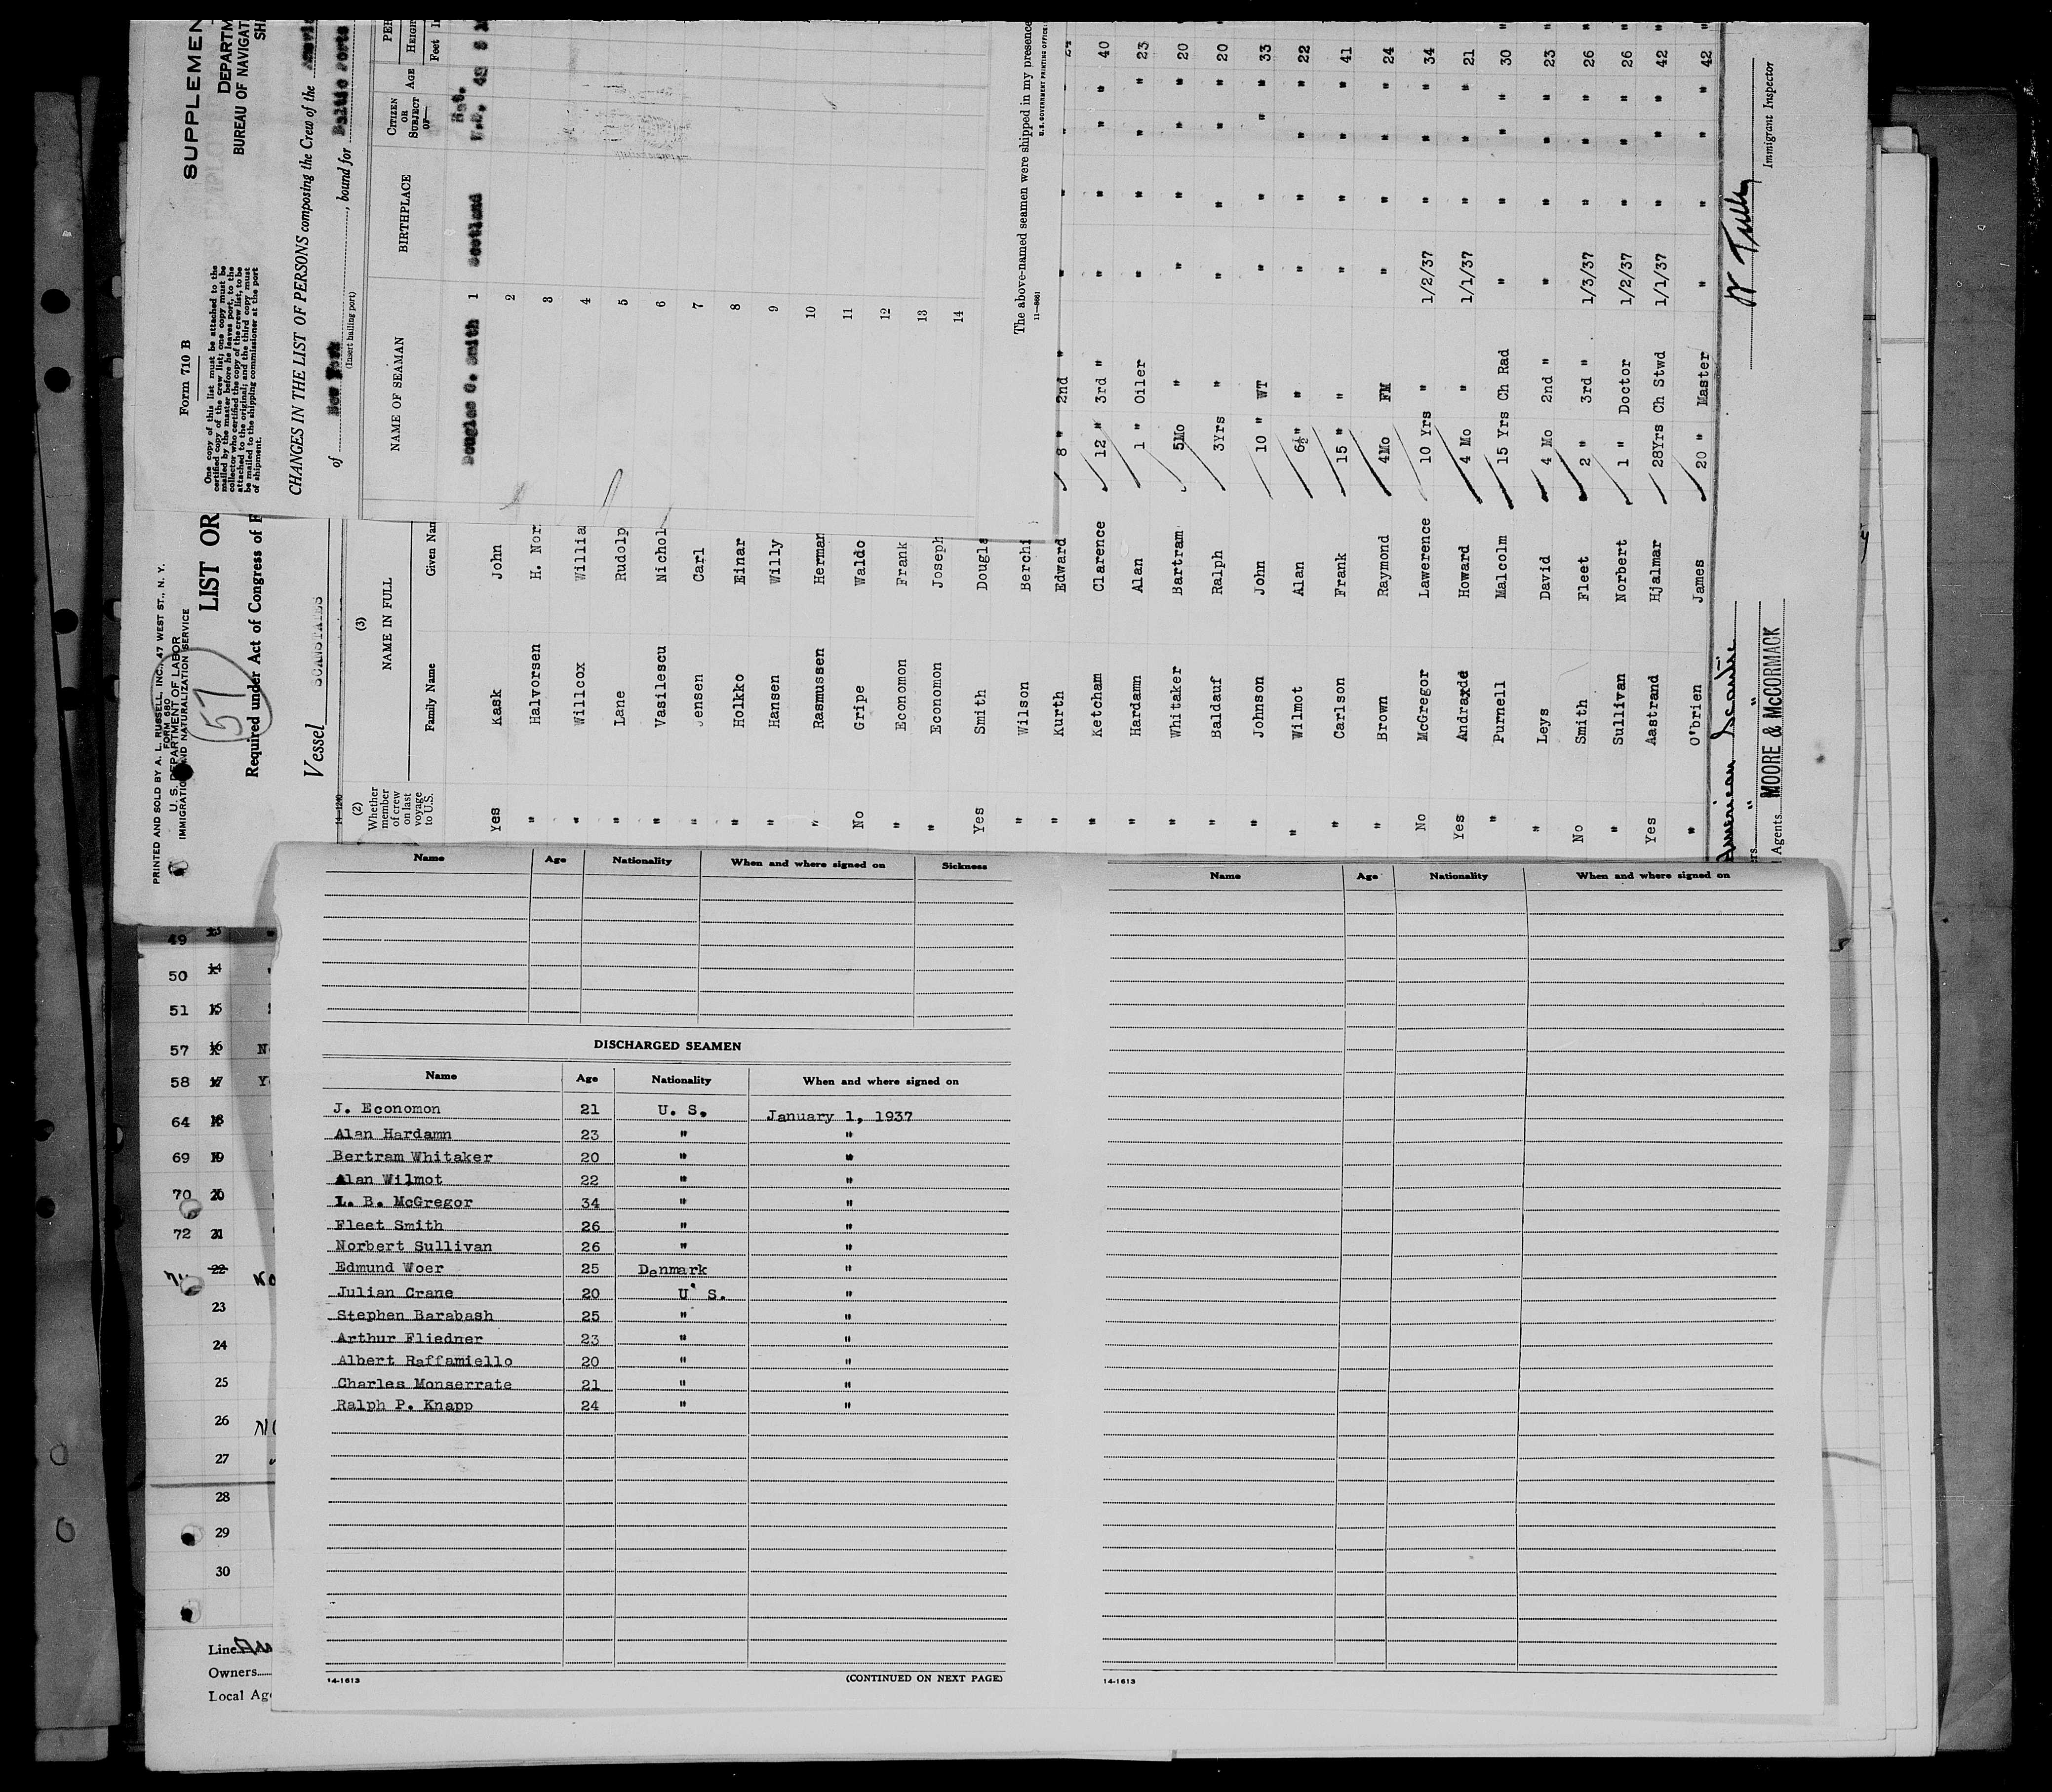 SUPPLEMEN
DEPARTM
BUREAU OF NAVIGAT
SH
Form 710 B
One copy of this list must be attached to the
certified copy of the crew list; one copy must be
mailed by the master before he leaves port, to the
collector who certified the copy of the crew list, to be
attached to the original; and the third copy must
be mailed to the shipping commissioner at the port
of shipment.
CHANGES IN THE LIST OF PERSONS composing the Crew of the
of New York, bound for Baltic Ports
(Insert hailing port)
NAME OF SEAMAN BIRTHPLACE CITIZEN OR SUBJECT OF— AGE HEIGH
Feet
Nat.
Douglas O. Smith 1 Scotland U.S. 48 5
2
3
4
5
6
7
8
9
10
11
12
13
14
The above-named seamen were shipped in my presence
11—8661 U.S. GOVERNMENT PRINTING OFFICE
PRINTED AND SOLD BY A. L. RUSSELL, INC., 47 WEST ST., N. Y.
FORM 680
U. S. DEPARTMENT OF LABOR
IMMIGRATION AND NATURALIZATION SERVICE
57
LIST OR
Required under Act of Congress of F
Vessel SCANSTATES
14-1240
(2) (3)
Whether member of crew on last voyage to U.S. NAME IN FULL
Family Name Given Nam
Yes Kask John
" Halvorsen H. Nor
" Willcox Willia
" Lane Rudolp
" Vasilescu Nichol
" Jensen Carl
" Holkko Einar
" Hansen Willy
" Rasmussen Herman
No Gripe Waldo
" Economon Frank
" Economon Joseph
Yes Smith Dougla
" Wilson Berchi
" Kurth Edward 8 " 2nd " " " " " 24
" Ketcham Clarence 12 " 3rd " " " " " 40
" Hardamn Alan 1 " Oiler " " " " 23
" Whitaker Bartram 5Mo " " " " " 20
" Baldauf Ralph 3Yrs " " " " " 20
" Johnson John 10 " WT " " " " 33
" Wilmot Alan 6½" " " " " " 22
" Carlson Frank 15 " " " " " " 41
" Brown Raymond 4Mo FM " " " " 24
No McGregor Lawerence 10 Yrs " 1/2/37 " " " 34
Yes Andraxde Howard 4 Mo " 1/1/37 " " " 21
" Purnell Malcolm 15 Yrs Ch Rad " " " " 30 "
" Leys David 4 Mo 2nd " " " " " 23 "
No Smith Fleet 2 " 3rd " 1/3/37 " " " 26 "
" Sullivan Norbert 1 " Doctor 1/2/37 " " " 26 "
Yes Aastrand Hjalmar 28Yrs Ch Stwd 1/1/37 " " " 42 "
" O'brien James 20 " Master " " " " 42 "
American Scantic
ers " "
Agents MOORE & McCORMACK
Immigrant Inspector
49
50 14
51 15
57 16 N
58 17 Y
64 18
69 19
70 20
72 21
22 NO
23
24
25
26 NO
27
28
29
30
Line
Owners
Local Age
Name Age Nationality When and where signed on Sickness
DISCHARGED SEAMEN
Name Age Nationality When and where signed on
J. Economon 21 U. S. January 1, 1937
Alan Hardamn 23 " "
Bertram Whitaker 20 " "
Alan Wilmot 22 " "
L. B. McGregor 34 " "
Fleet Smith 26 " "
Norbert Sullivan 26 " "
Edmund Woer 25 Denmark "
Julian Crane 20 U S. "
Stephen Barabash 25 " "
Arthur Fliedner 23 " "
Albert Raffamiello 20 " "
Charles Monserrate 21 " "
Ralph P. Knapp 24 " "
14-1613 (CONTINUED ON NEXT PAGE)
Name Age Nationality When and where signed on
14-1613